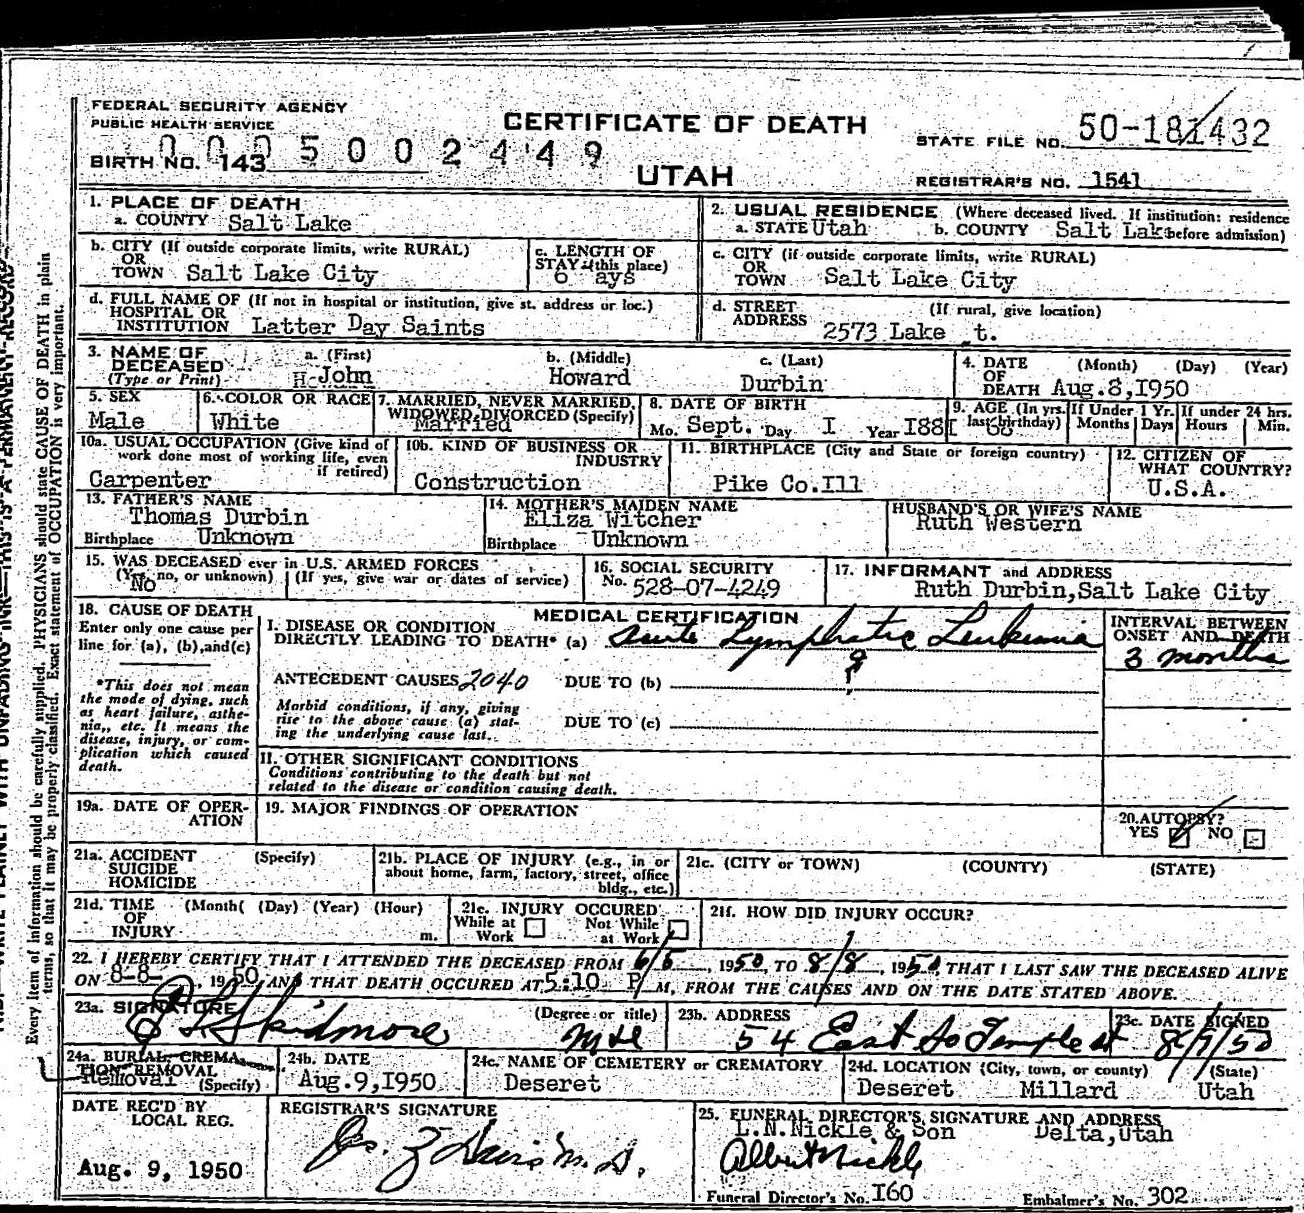 FEDERAL SECURITY AGENCY
PUBLIC HEALTH SERVICE
CERTIFICATE OF DEATH
STATE FILE NO. 50-181432
0005002449
BIRTH NO. 143
UTAH
REGISTRAR'S NO. 1541
1. PLACE OF DEATH
a. COUNTY Salt Lake
2. USUAL RESIDENCE (Where deceased lived. If institution: residence before admission)
a. STATE Utah b. COUNTY Salt Lak
b. CITY (If outside corporate limits, write RURAL)
OR
TOWN Salt Lake City
c. LENGTH OF
STAY (this place)
6 ays
c. CITY (if outside corporate limits, write RURAL)
OR
TOWN Salt Lake City
d. FULL NAME OF (If not in hospital or institution, give st. address or loc.)
HOSPITAL OR
INSTITUTION Latter Day Saints
d. STREET (If rural, give location)
ADDRESS
2573 Lake t.
3. NAME OF
DECEASED
(Type or Print)
a. (First)
H John
b. (Middle)
Howard
c. (Last)
Durbin
4. DATE (Month) (Day) (Year)
OF
DEATH Aug.8,1950
5. SEX
Male
6. COLOR OR RACE
White
7. MARRIED, NEVER MARRIED,
WIDOWED, DIVORCED (Specify)
Married
8. DATE OF BIRTH
Mo. Sept. Day I Year I88I
9. AGE (In yrs. last birthday)
68
If Under 1 Yr.
Months Days
If under 24 hrs.
Hours Min.
10a. USUAL OCCUPATION (Give kind of
work done most of working life, even
if retired)
Carpenter
10b. KIND OF BUSINESS OR
INDUSTRY
Construction
11. BIRTHPLACE (City and State or foreign country)
Pike Co.Ill
12. CITIZEN OF
WHAT COUNTRY?
U.S.A.
13. FATHER'S NAME
Thomas Durbin
Birthplace Unknown
14. MOTHER'S MAIDEN NAME
Eliza Witcher
Birthplace Unknown
HUSBAND'S OR WIFE'S NAME
Ruth Western
15. WAS DECEASED ever in U.S. ARMED FORCES
(Yes, no, or unknown) (If yes, give war or dates of service)
No
16. SOCIAL SECURITY
No. 528-07-4249
17. INFORMANT and ADDRESS
Ruth Durbin, Salt Lake City
18. CAUSE OF DEATH
Enter only one cause per
line for (a), (b), and (c)
*This does not mean
the mode of dying, such
as heart failure, asthe-
nia,, etc. It means the
disease, injury, or com-
plication which caused
death.
MEDICAL CERTIFICATION
I. DISEASE OR CONDITION
DIRECTLY LEADING TO DEATH* (a) Acute Lymphatic Leukemia
INTERVAL BETWEEN
ONSET AND DEATH
3 months
ANTECEDENT CAUSES 2040 DUE TO (b)
Morbid conditions, if any, giving
rise to the above cause (a) stat-
ing the underlying cause last.
DUE TO (c)
II. OTHER SIGNIFICANT CONDITIONS
Conditions contributing to the death but not
related to the disease or condition causing death.
19a. DATE OF OPER-
ATION
19. MAJOR FINDINGS OF OPERATION
20. AUTOPSY?
YES NO
21a. ACCIDENT (Specify)
SUICIDE
HOMICIDE
21b. PLACE OF INJURY (e.g., in or
about home, farm, factory, street, office
bldg., etc.)
21c. (CITY or TOWN) (COUNTY) (STATE)
21d. TIME (Month( (Day) (Year) (Hour)
OF
INJURY m.
21e. INJURY OCCURED
While at Work
Not While at Work
21f. HOW DID INJURY OCCUR?
22. I HEREBY CERTIFY THAT I ATTENDED THE DECEASED FROM 6/5, 1950, TO 8/8, 1950, THAT I LAST SAW THE DECEASED ALIVE
ON 8-8-, 1950, AND THAT DEATH OCCURED AT 5:10 P M, FROM THE CAUSES AND ON THE DATE STATED ABOVE.
23a. SIGNATURE (Degree or title)
Skidmore
23b. ADDRESS
54 East So Temple st
23c. DATE SIGNED
8/9/50
24a. BURIAL, CREMA-
TION REMOVAL
Removal (Specify)
24b. DATE
Aug.9,1950
24c. NAME OF CEMETERY or CREMATORY
Deseret
24d. LOCATION (City, town, or county) (State)
Deseret Millard Utah
DATE REC'D BY
LOCAL REG.
Aug. 9, 1950
REGISTRAR'S SIGNATURE
M.D.
25. FUNERAL DIRECTOR'S SIGNATURE AND ADDRESS
L.N.Nickle & Son Delta, Utah
Albert Nickle
Funeral Director's No. I60 Embalmer's No. 302
Every item of information should be carefully supplied. PHYSICIANS should state CAUSE OF DEATH in plain
terms, so that it may be properly classified. Exact statement of OCCUPATION is very important.